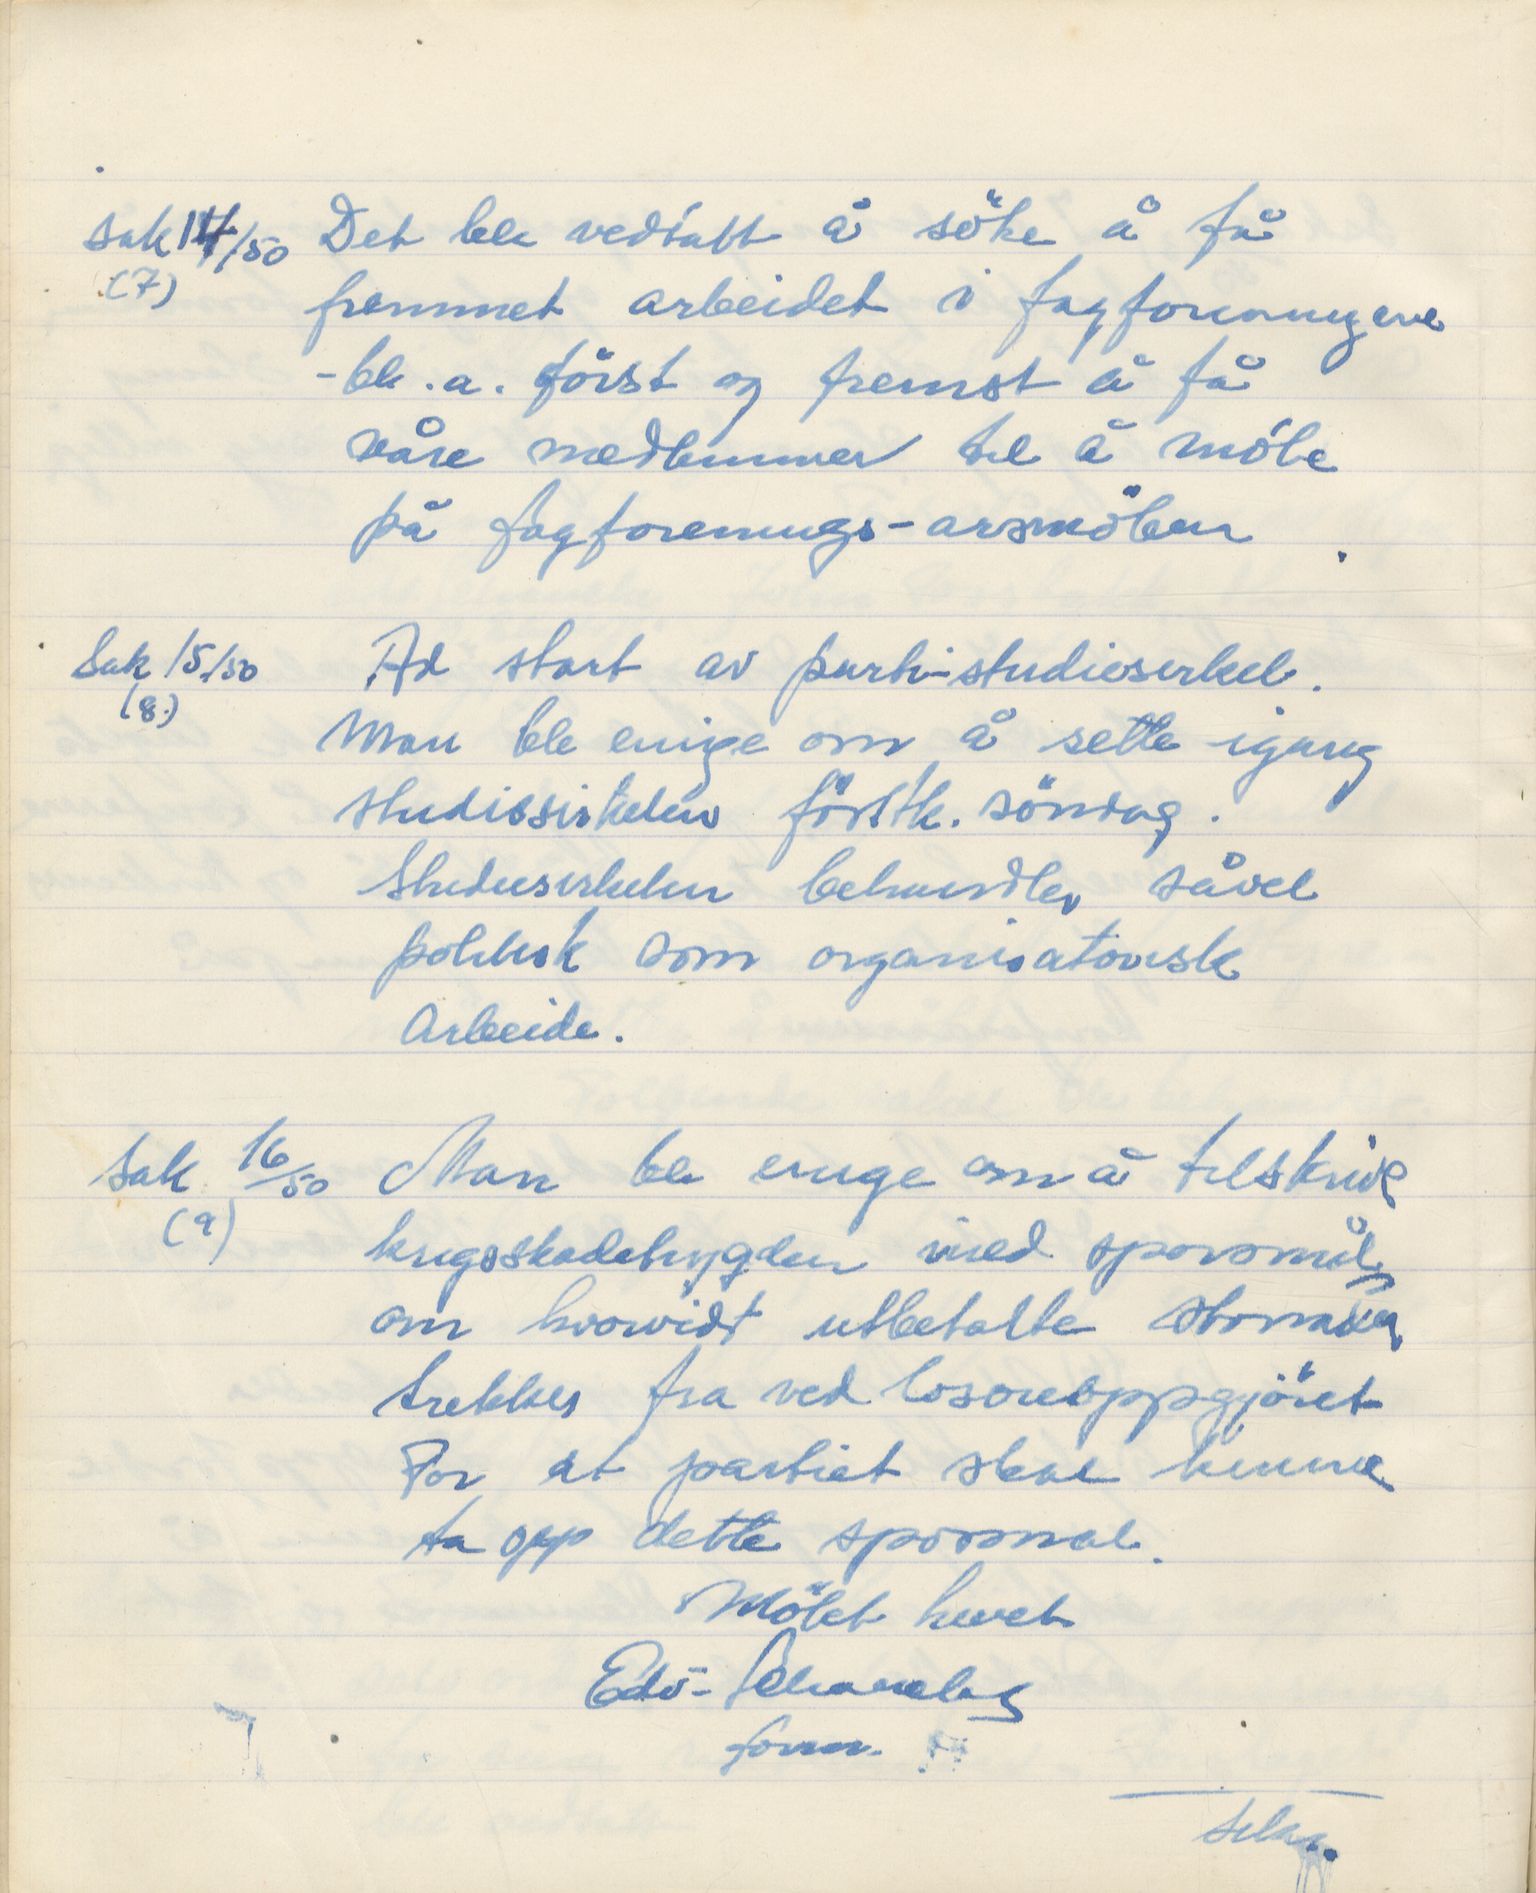 Sak 14/50 Det ble vedtatt å söke å få
(7) fremmet arbeidet i fagforeningene
- bl.a. först og fremst å få
våre medlemmer til å möte
på fagforenings-årsmöten
Sak 15/50 Ad start av parti-studiesirkel.
(8.) Man ble enige om å sette igang
studiesirkelen förstk. söndag.
Studiesirkelen behandler såvel
politisk som organisatorisk
arbeide.
Sak 16/50 Man ble enige om å tilskrive
(9) krigsskadetrygden med spørsmål
om hvorvidt utbetalte
trekkes fra ved losoreoppgjöret
For at partiet skal kunne
ta opp dette spörsmal.
Mötet hevet
Edv.
form.
sekr.